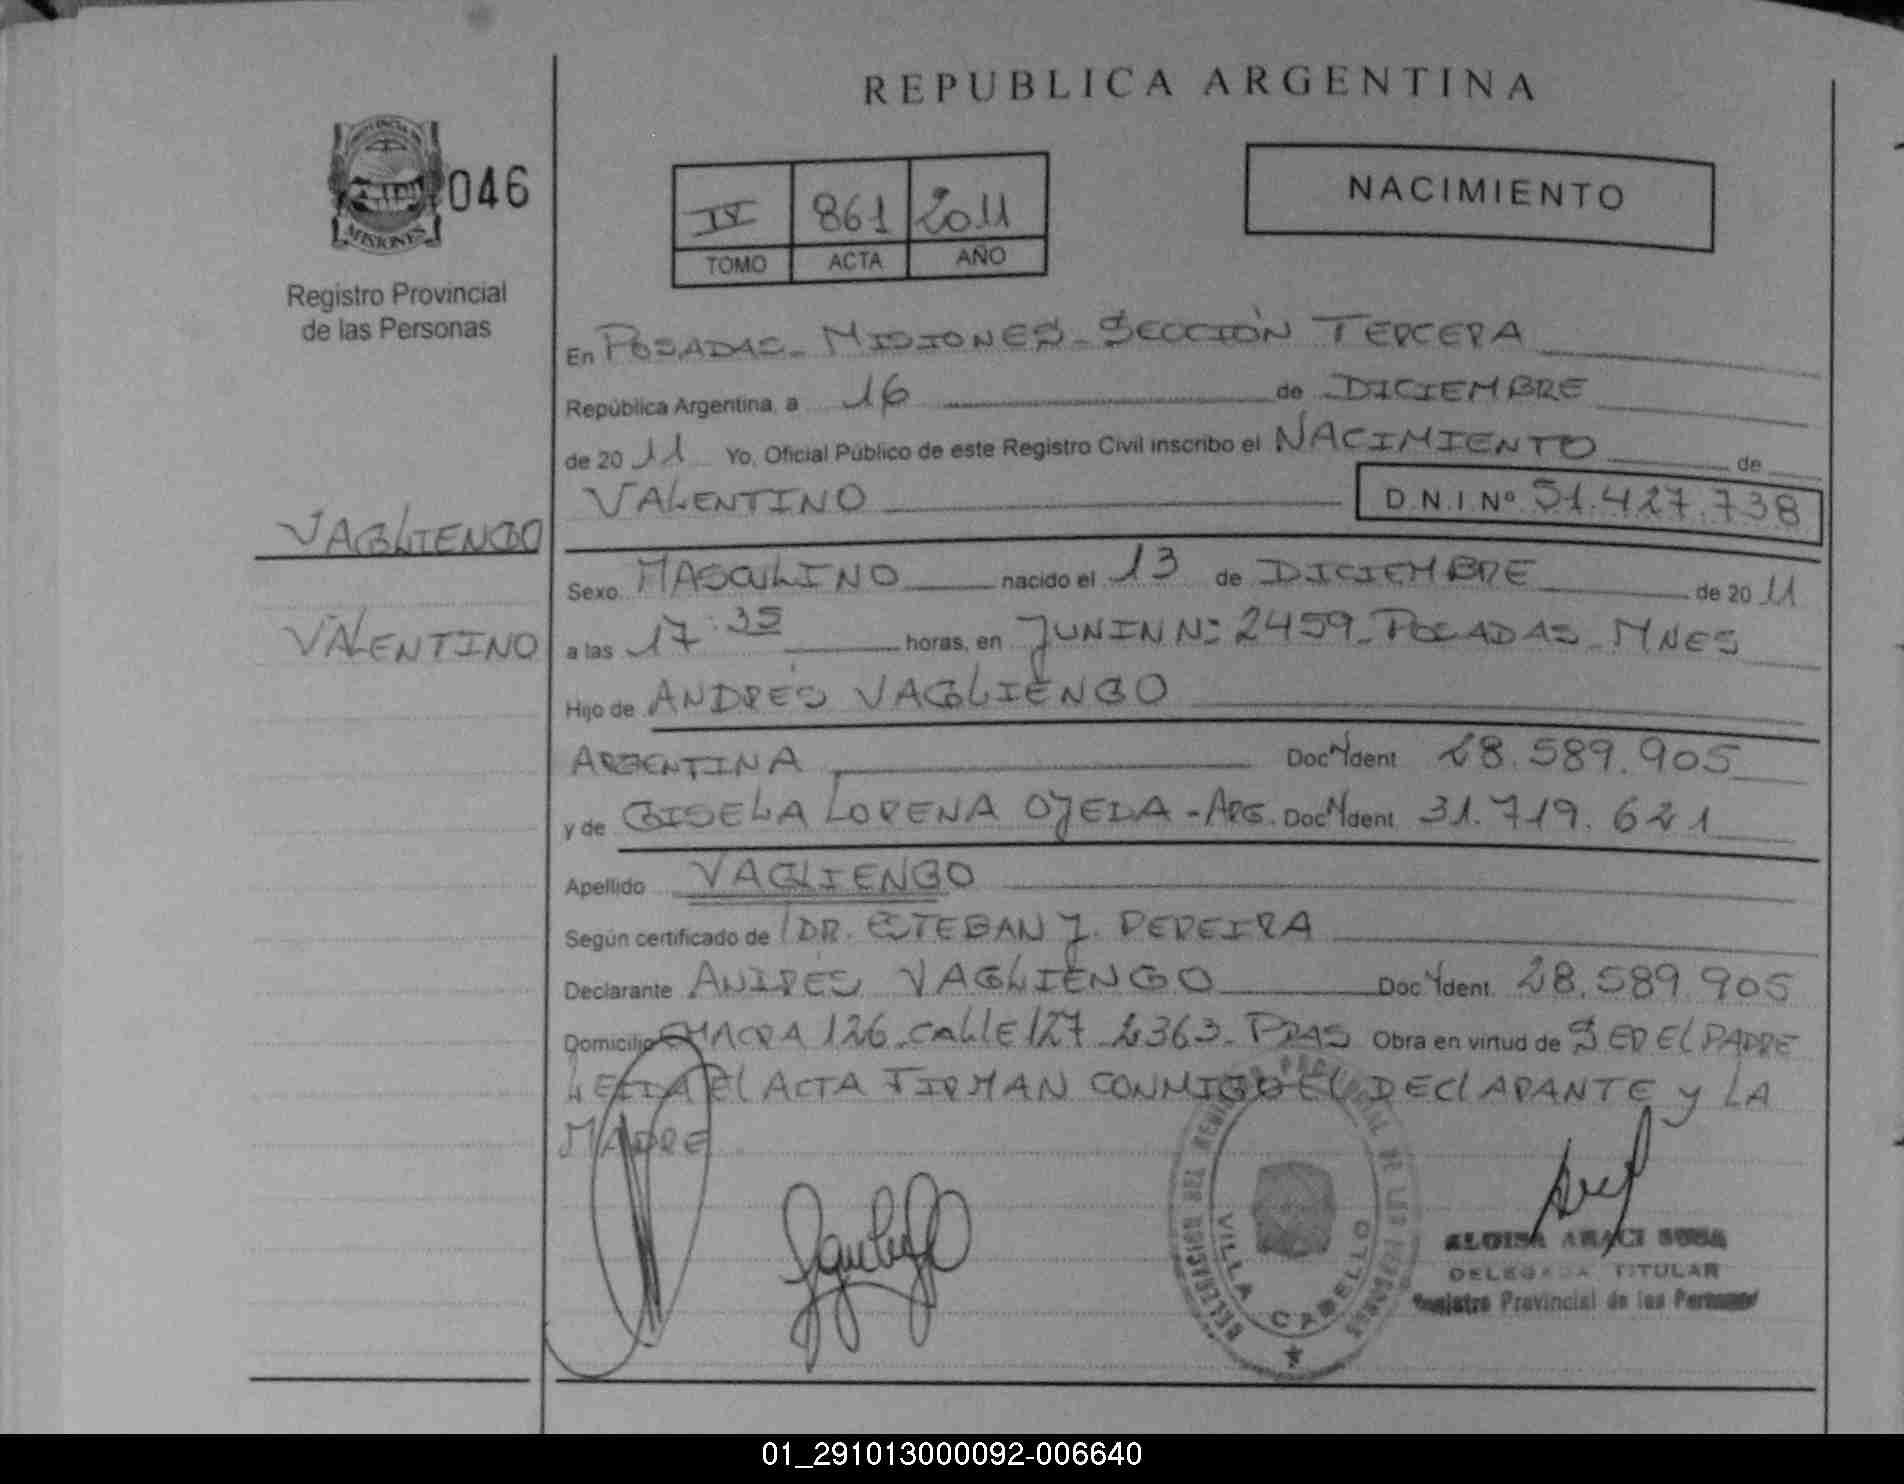 REPUBLICA ARGENTINA
PROVINCIA DE
MISIONES
046
Registro Provincial
de las Personas
IV 861 2011
TOMO ACTA AÑO
NACIMIENTO
En POSADAS - MISIONES - SECCIÓN TERCERA
República Argentina, a 16 de DICIEMBRE
de 2011 Yo, Oficial Público de este Registro Civil inscribo el NACIMIENTO de
VALENTINO D.N.I Nº 51.427.738
VAGLIENGO
VALENTINO
Sexo MASCULINO nacido el 13 de DICIEMBRE de 2011
a las 17:35 horas, en JUNIN Nº 2459 - POSADAS - MNES
Hijo de ANDRÉS VAGLIENGO
ARGENTINA Doc. Ident 28.589.905
y de GISELA LORENA OJEDA - ARG. Doc. Ident 31.719.621
Apellido VAGLIENGO
Según certificado de DR. ESTEBAN J. PEREIRA
Declarante ANDRES VAGLIENGO Doc. Ident. 28.589.905
Domicilio CHACRA 126 - CALLE 127 - 2363 - PDAS Obra en virtud de SER EL PADRE
LEIDA EL ACTA FIRMAN CONMIGO EL DECLARANTE Y LA
MADRE
DELEGACION DEL REGISTRO PROVINCIAL DE LAS PERSONAS
VILLA CABELLO
ALOISA ARACI SOSA
DELEGADA TITULAR
Registro Provincial de las Personas
01_291013000092-006640